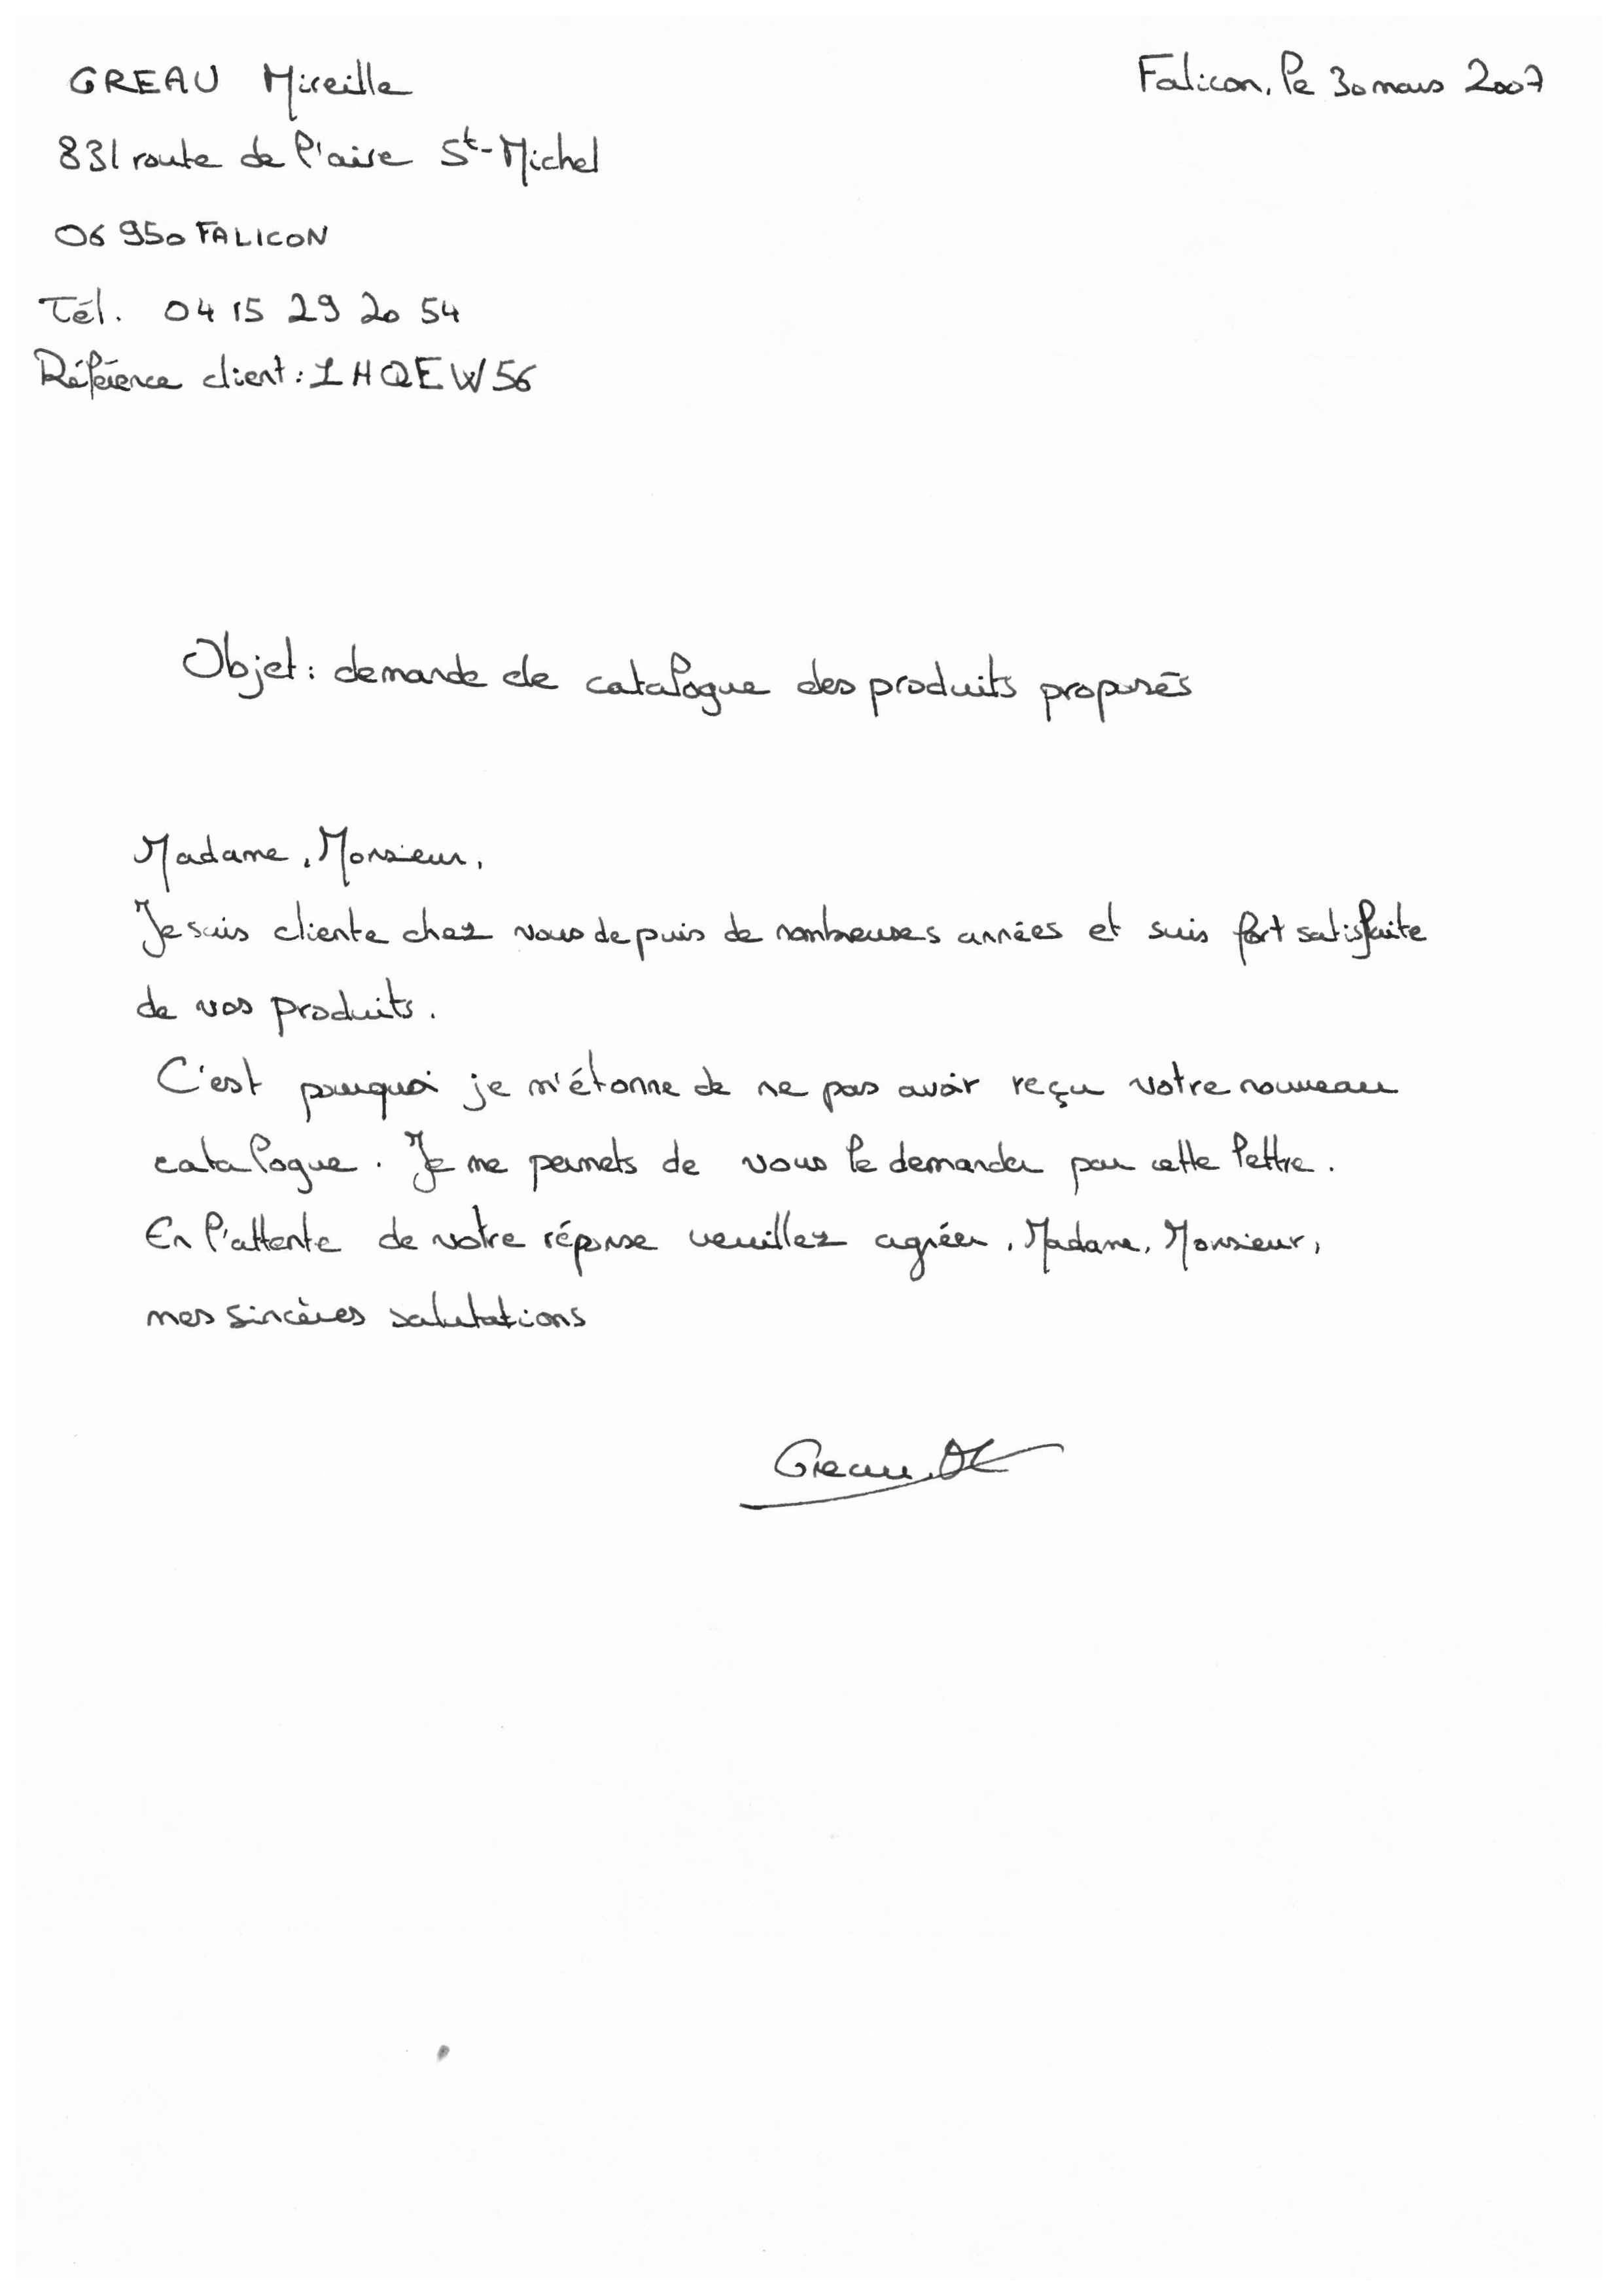 GREAU Mireille
Falicon, le 30 mars 2007
831 route de l'aire St-Michel
06 950 FALICON
Tél. 04 15 29 20 54
Référence client : LHQEW56
Objet : demande de catalogue des produits proposés
Madame, Monsieur,
Je suis cliente chez vous depuis de nombreuses années et suis fort satisfaite
de vos produits.
C'est pourquoi je m'étonne de ne pas avoir reçu votre nouveau
catalogue. Je me permets de vous le demander par cette lettre.
En l'attente de votre réponse veuillez agréer, Madame, Monsieur,
mes sincères salutations
Greau